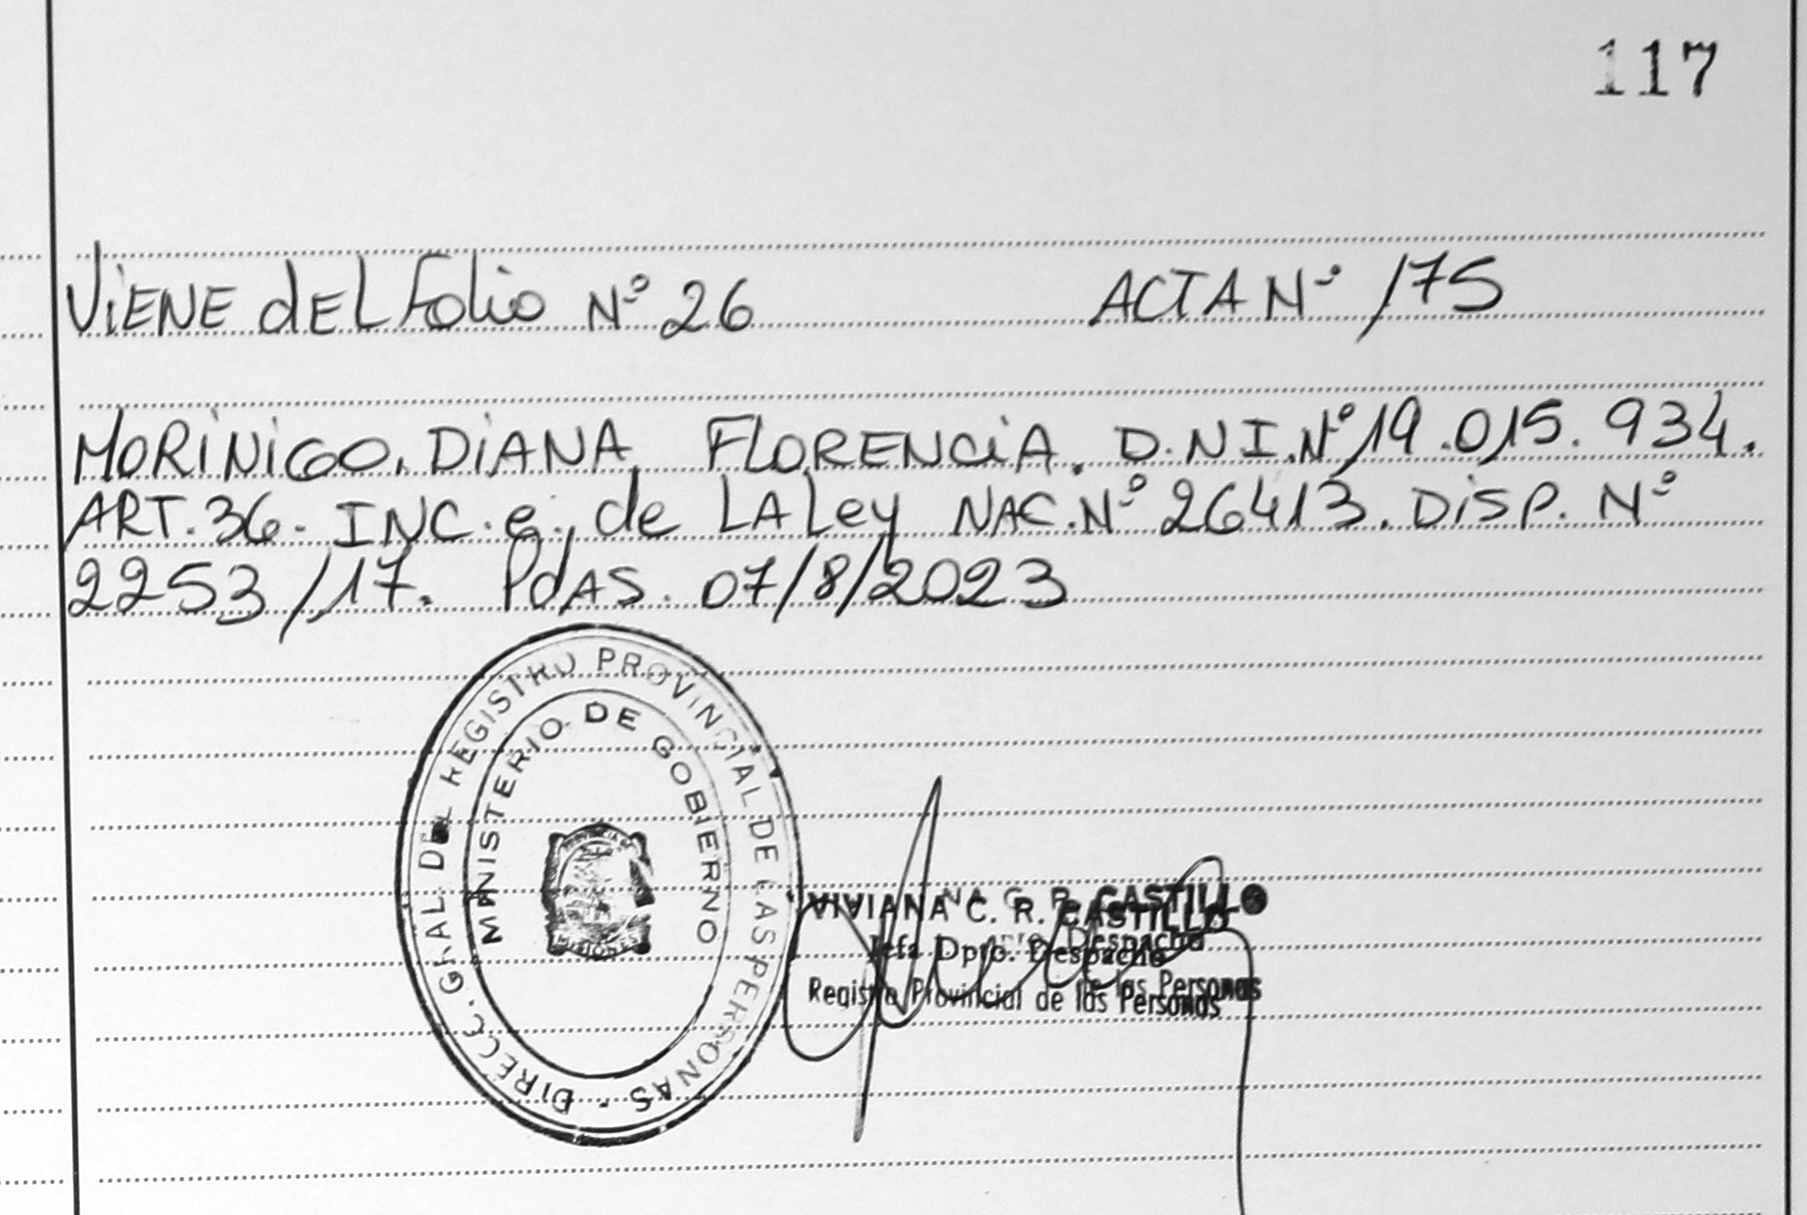 117
ViENE dEL Folio Nº 26 ACTA Nº 175
MORiNiGO. DiANA FLORENCiA. D.N.I. Nº 19.015.934.
ART. 36. INC. e. de LA Ley NAC. Nº 26413. DiSP. Nº
2253/17. PdAS. 07/8/2023
DIRECC. GRAL. DEL REGISTRO PROVINCIAL DE LAS PERSONAS
MINISTERIO DE GOBIERNO
PROVINCIA DE
MISIONES
VIVIANA C. R. CASTILLO
Jefa Dpto. Despacho
Registro Provincial de las Personas